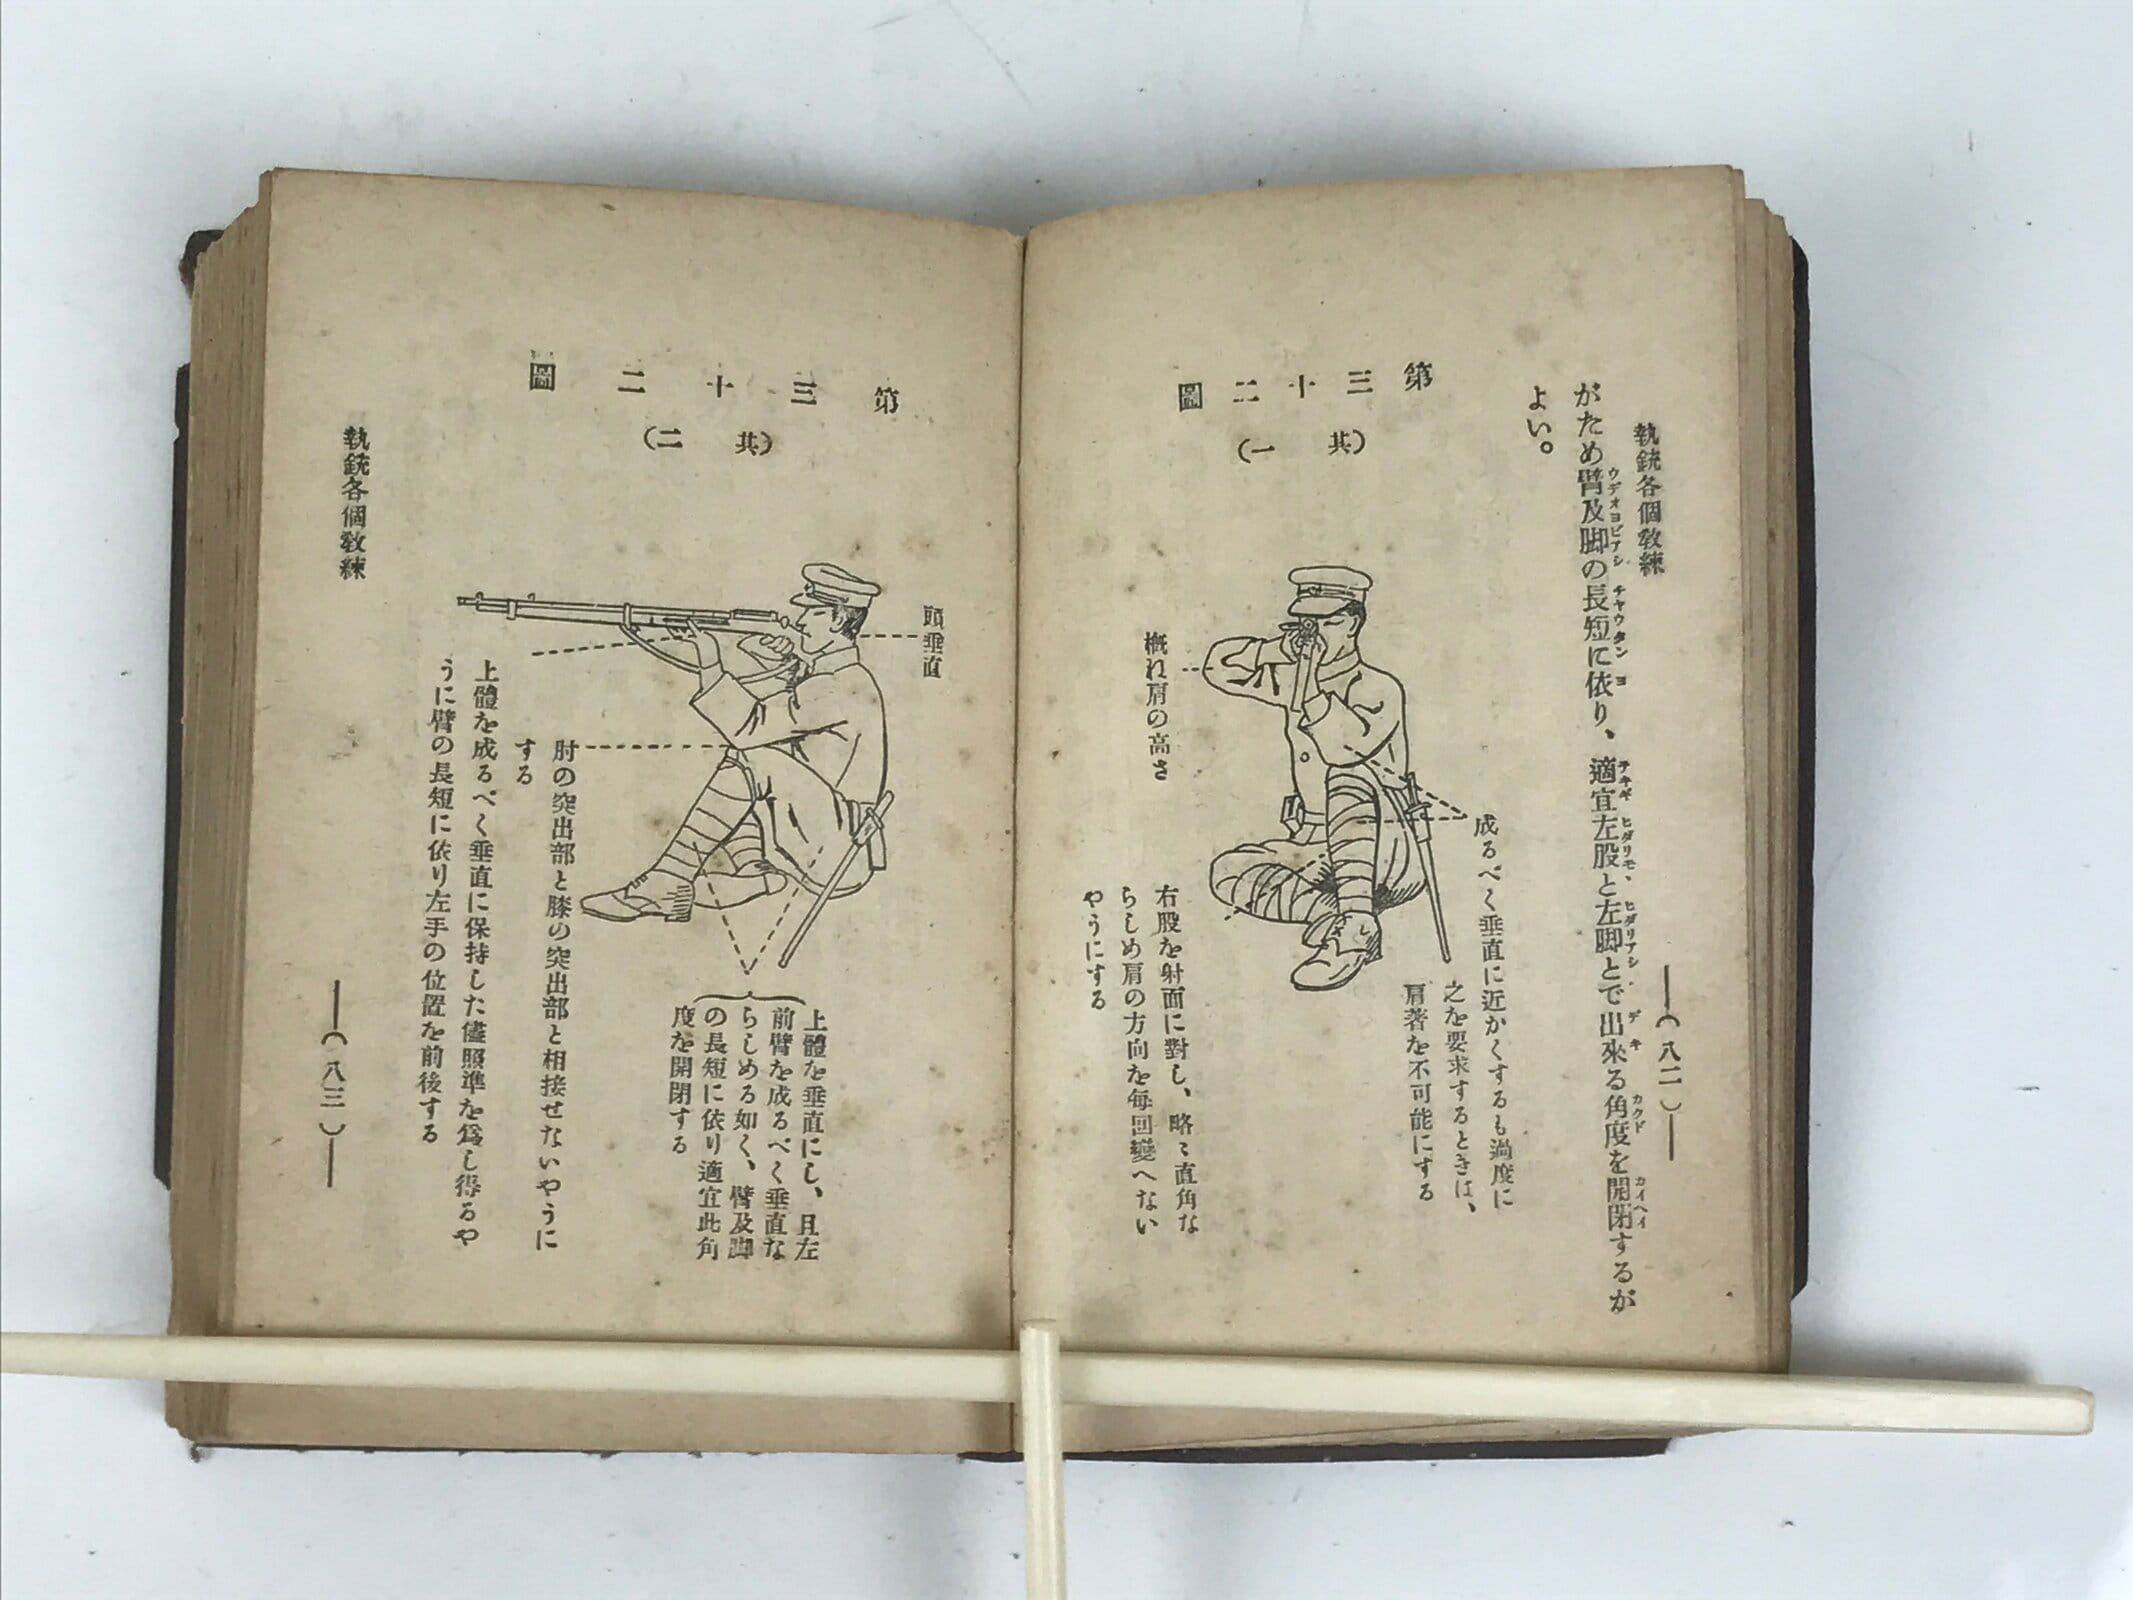 執銃各個教練
―(八二)―
がため臂及脚の長短に依り、適宜左股と左脚とで出來る角度を開閉するが
ウデオヨビアシ チヤウタン ヨ テキギ ヒダリモヽ ヒダリアシ デキ カクド カイヘイ
よい。
第三十二圖
(其一)
成るべく垂直に近かくするも過度に
之を要求するときは、
肩著を不可能にする
概ね肩の高さ
右股を射面に對し、略〻直角な
らしめ肩の方向を毎回變へない
やうにする
第三十二圖
(其二)
頭垂直
上體を垂直にし、且左
前臂を成るべく垂直な
らしめる如く、臂及脚
の長短に依り適宜此角
度を開閉する
肘の突出部と膝の突出部と相接せないやうに
する
上體を成るべく垂直に保持した儘照準を爲し得るや
うに臂の長短に依り左手の位置を前後する
執銃各個教練
―(八三)―